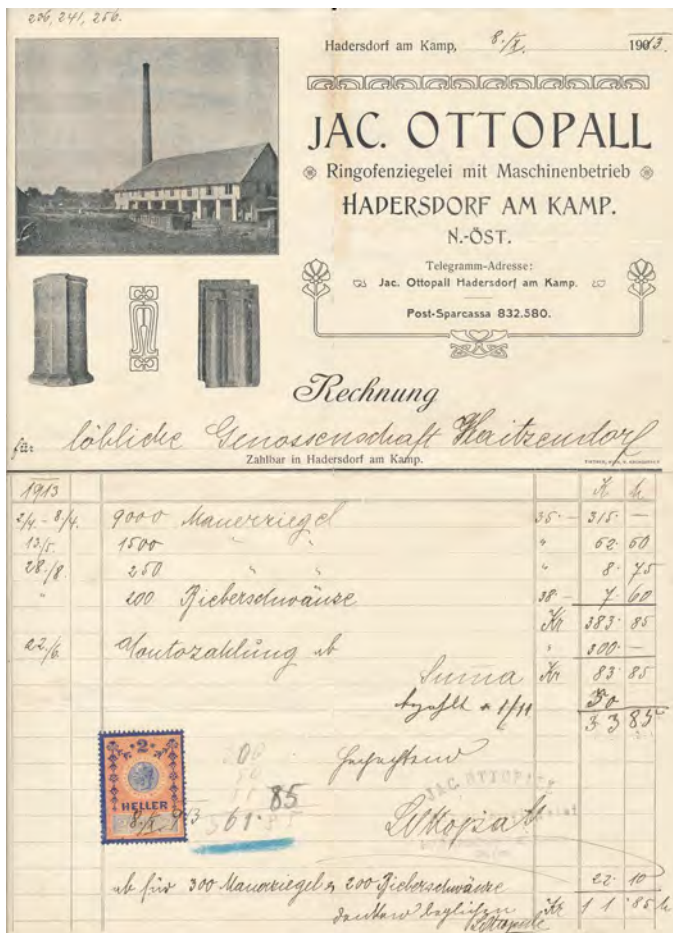 236, 241, 256.
Hadersdorf am Kamp, 8./X. 1913.
JAC. OTTOPALL
Ringofenziegelei mit Maschinenbetrieb
HADERSDORF AM KAMP.
N.-ÖST.
Telegramm-Adresse:
Jac. Ottopall Hadersdorf am Kamp.
Post-Sparcassa 832.580.
Rechnung
für löbliche Genossenschaft Haitzendorf
Zahlbar in Hadersdorf am Kamp.
1913 K h
2/4. - 8/4. 9000 Mauerziegel 35 - 315 -
13/5. 1500 " " " 52 50
28./8. 250 " " " 8 75
" 200 Bieberschwänze 38 - 7 60
Kr 383 85
22/6. Kontozahlung ab " 300 -
Suma Kr 83 85
bezahlt 1/11 50
33 85
2
HELLER
8./X. 913
300
50
11 85
361 85
JAC. OTTOPALL
ab für 300 Mauerziegel 200 Bieberschwänze 22 10
dankend beglichen Kr 11 85 h